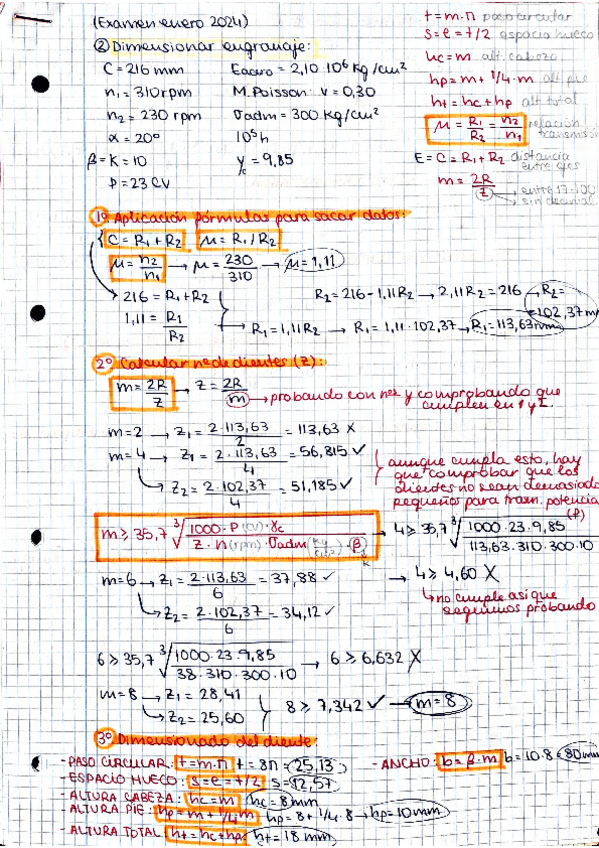 (Examen enero 2024)
② Dimensionar engranaje:
C = 216 mm
Eacero = 2,10·10⁶ kg/cm²
n₁ = 310 rpm
M.Poisson: ν = 0,30
n₂ = 230 rpm
σadm = 300 kg/cm²
α = 20º
10⁵ h
β = K = 10
y/c = 9,85
P = 23 CV
t = m·π paso circular
s = e = t/2 espacio hueco
hc = m alt. cabeza
hp = m + 1/4·m alt. pie
ht = hc + hp alt. total
μ = R₁/R₂ = n₂/n₁ relación transmisión
E = C = R₁ + R₂ distancia entre ejes
m = 2R/z
→ entre 17-100
→ sin decimal
1º Aplicación fórmulas para sacar datos:
{ C = R₁ + R₂ μ = R₁/R₂
μ = n₂/n₁ → μ = 230/310 → μ = 1,11
216 = R₁ + R₂
1,11 = R₁/R₂
R₂ = 216 - 1,11R₂ → 2,11R₂ = 216 → R₂ = 102,37 m
R₁ = 1,11R₂ → R₁ = 1,11·102,37 → R₁ = 113,63 mm
2º Calcular nº de dientes (z):
m = 2R/z → z = 2R/m → probando con nos y comprobando que
cumplen en 1 y 2.
m = 2 → z₁ = 2·113,63/2 = 113,63 X
m = 4 → z₁ = 2·113,63/4 = 56,815 ✓
→ z₂ = 2·102,37/4 = 51,185 ✓
aunque cumpla esto, hay
que comprobar que los
dientes no sean demasiado
pequeños para tram. potencia
(P)
m ≥ 35,7 ∛(1000·P(CV)·yc / z·n(rpm)·σadm(kg/cm²)·β) → 4 ≥ 35,7 ∛(1000·23·9,85 / 113,63·310·300·10)
k
m = 6 → z₁ = 2·113,63/6 = 37,88 ✓
→ 4 ≥ 4,60 X
→ z₂ = 2·102,37/6 = 34,12 ✓
→ no cumple así que
seguimos probando
6 ≥ 35,7 ∛(1000·23·9,85 / 38·310·300·10) → 6 ≥ 6,632 X
m = 8 → z₁ = 28,41
→ z₂ = 25,60
8 ≥ 7,342 ✓ → m = 8
3º Dimensionado del diente:
- PASO CIRCULAR: t = m·π t = 8π = 25,13
- ANCHO: b = β·m b = 10·8 = 80 mm
- ESPACIO HUECO: s = e = t/2 s = 12,57
- ALTURA CABEZA: hc = m hc = 8 mm
- ALTURA PIE: hp = m + 1/4m hp = 8 + 1/4·8 → hp = 10 mm
- ALTURA TOTAL: ht = hc + hp ht = 18 mm